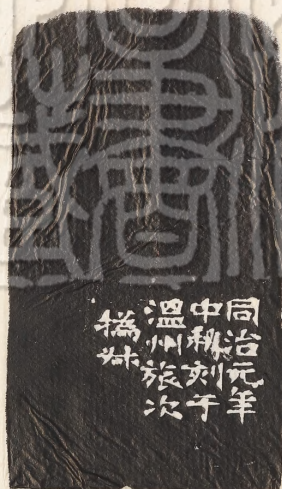 同治元年
中秋刻于
溫州旅次
撝叔